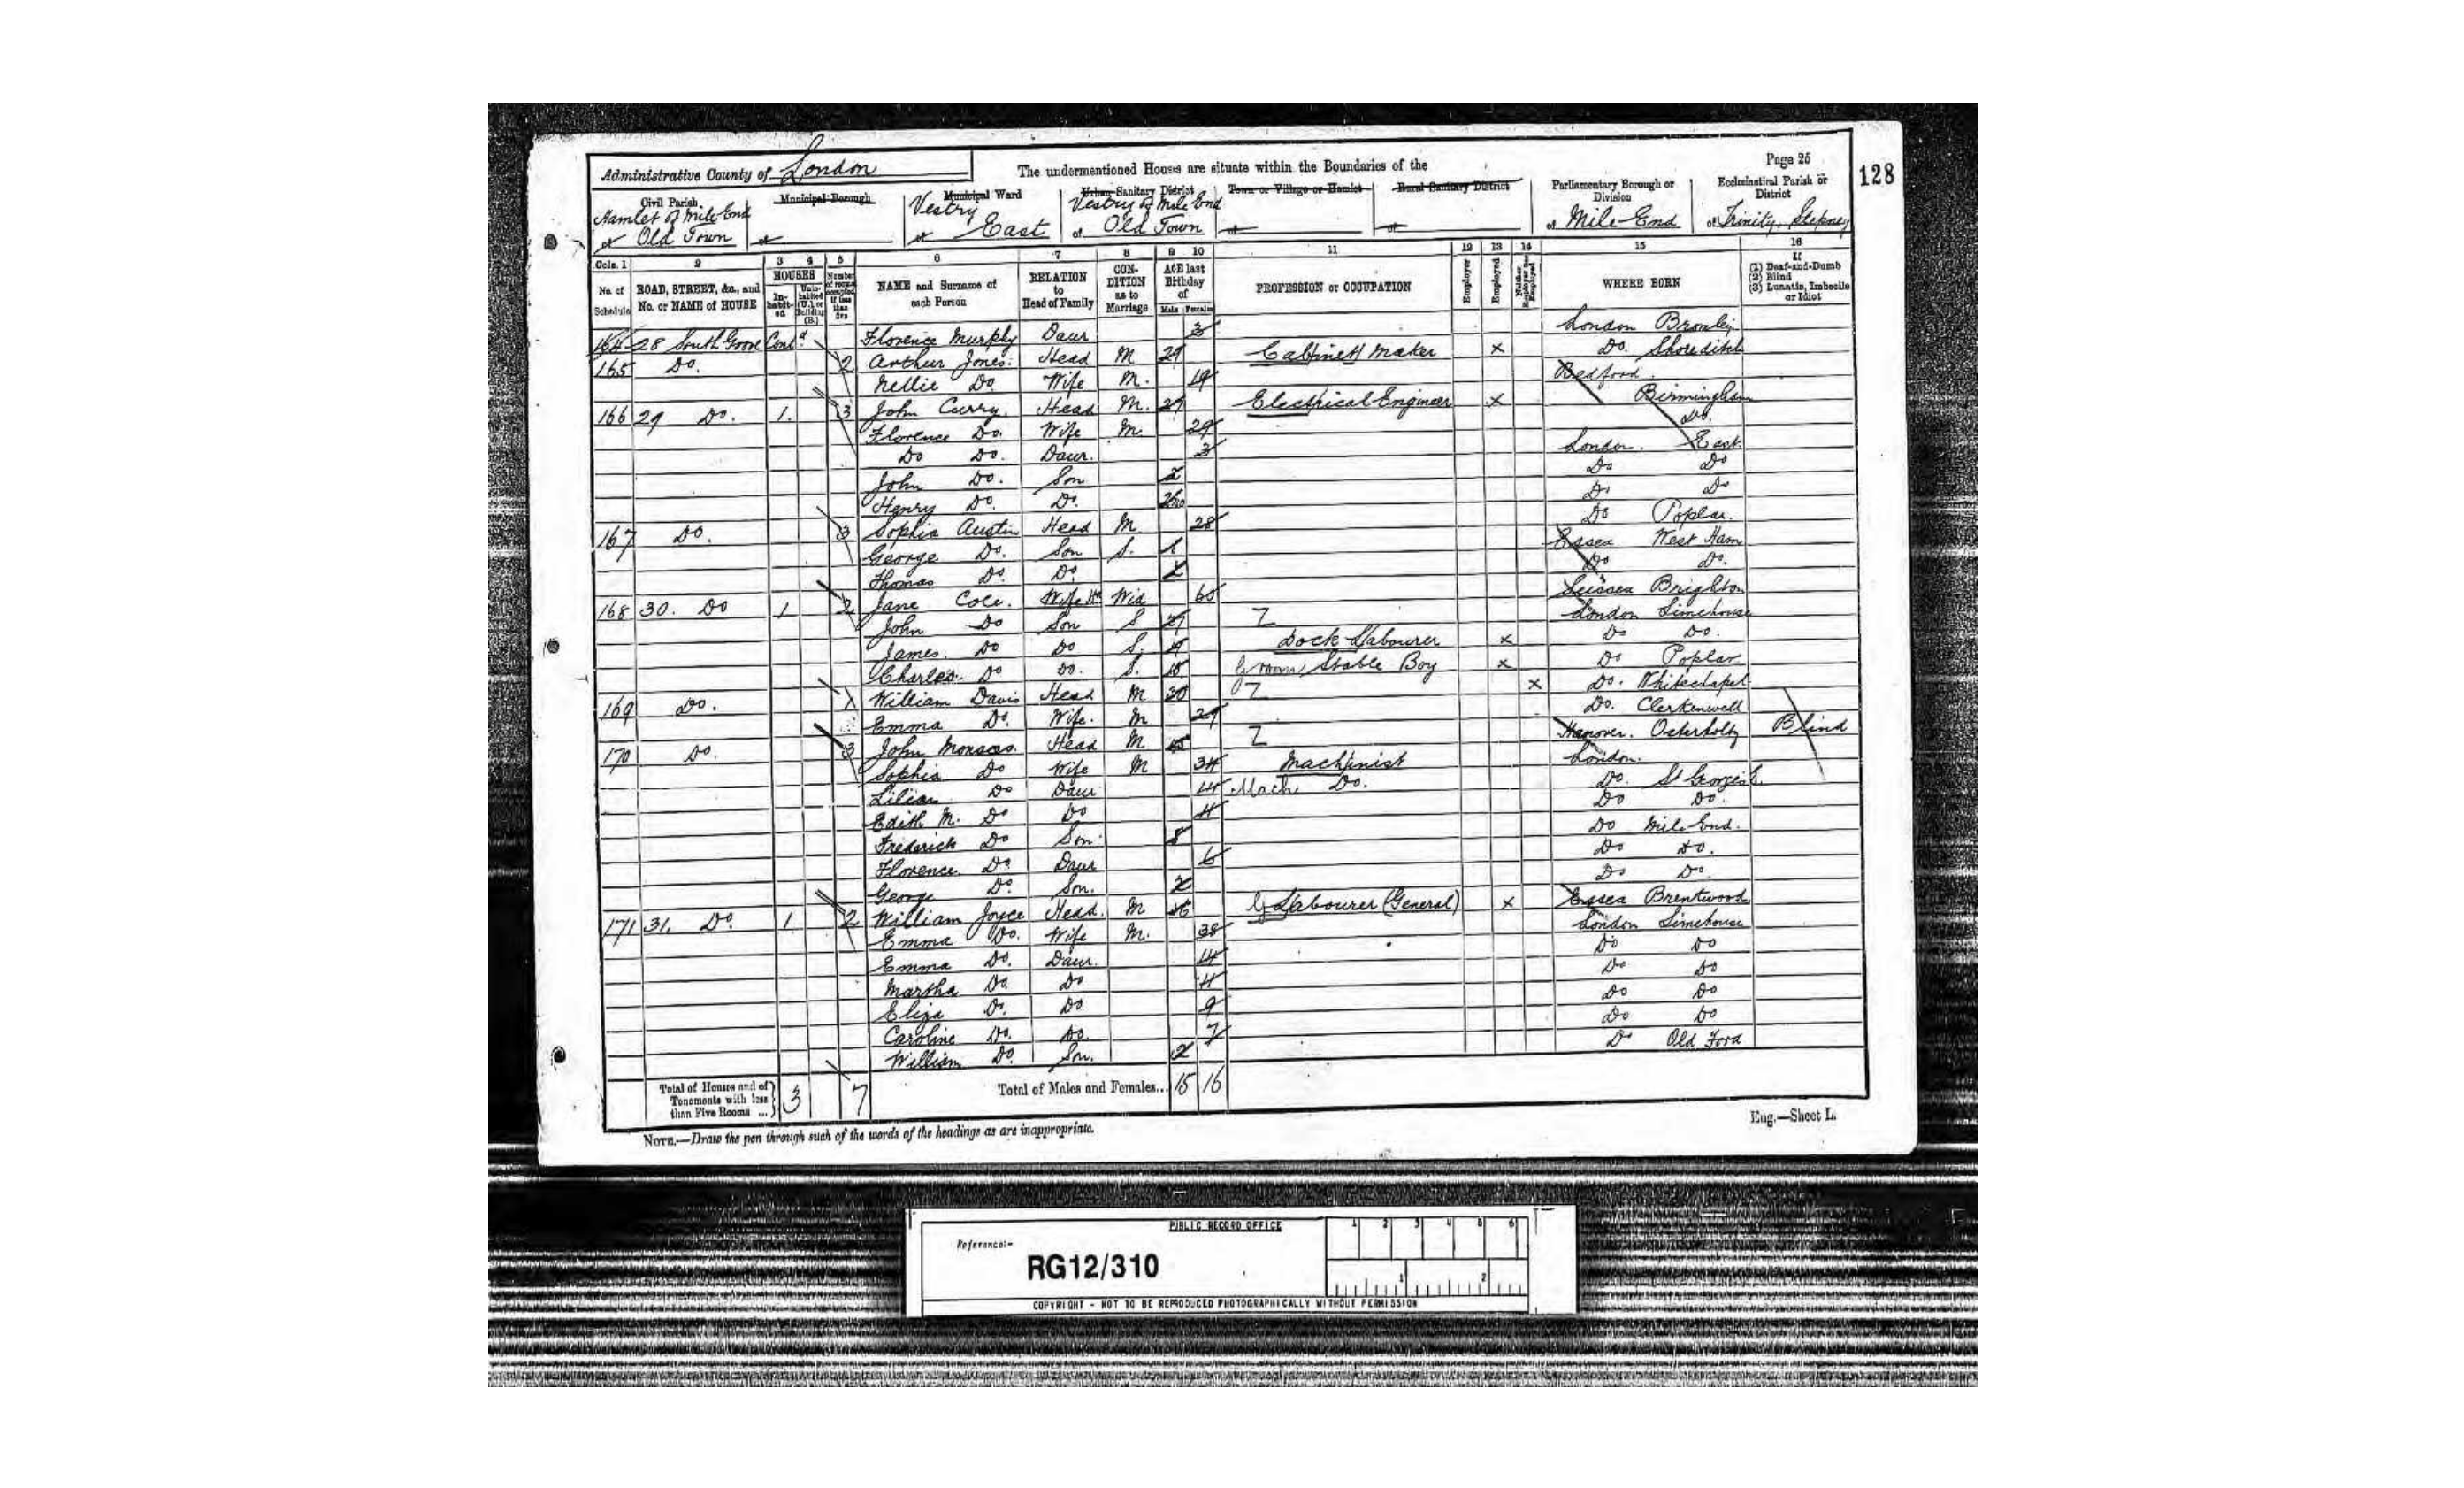 Administrative County of London
The undermentioned Houses are situate within the Boundaries of the
Page 25
128
Civil Parish
Hamlet of Mile End
of Old Town
Municipal Borough
of
Municipal Ward
Vestry
of East
Urban Sanitary District
Vestry of Mile End
of Old Town
Town or Village or Hamlet
of
Rural Sanitary District
of
Parliamentary Borough or Division
of Mile End
Ecclesiastical Parish or District
of Trinity, Stepney
Cols. 1 2 3 4 5 6 7 8 9 10 11 12 13 14 15 16
No. of Schedule
ROAD, STREET, &c., and No. or NAME of HOUSE
HOUSES
Inhabit-ed
Unin-habited (U.), or Building (B.)
Number of rooms occupied if less than five
NAME and Surname of each Person
RELATION to Head of Family
CON-DITION as to Marriage
AGE last Birthday of
Male Females
PROFESSION or OCCUPATION
Employer
Employed
Neither Employer nor Employed
WHERE BORN
If
(1) Deaf-and-Dumb
(2) Blind
(3) Lunatic, Imbecile or Idiot
164 28 South Grove Contd Florence Murphy Daur 3 London Bromley
165 Do. 2 Arthur Jones. Head M 29 Cabinett Maker x Do. Shoreditch
Nellie Do Wife M. 19 Bedford.
166 29 Do. 1. 3 John Curry. Head M. 29 Electrical Engineer x Birmingham
Florence Do. Wife M 29 Do.
Do Do. Daur. 3 London. East
John Do. Son 2 Do Do
Henry Do. Do. Do Do
167 Do. 3 Sophia Austin Head M 28 Do Poplar.
George Do. Son S. Essex West Ham
Thomas Do. Do. Do Do.
168 30. Do 1 2 Jane Cole. Wife Hd Wid 60 Sussex Brighton
John Do Son S London Limehouse
James. Do Do S. 19 Dock Labourer x Do Do.
Charles. Do Do. S. 15 Groom, Stable Boy x Do Poplar
169 Do. William Davis Head M 30 x Do. Whitechapel
Emma Do. Wife. M 29 Do. Clerkenwell
170 Do. 3 John Head M 45 Hanover. Osterholtz Blind
Sophia Do Wife M 34 Machinist London.
Lilian Do Daur 14 Mach Do. Do. St Georges E.
Edith M. Do Do Do Do.
Frederick Do Son 8 Do Mile End.
Florence. Do. Daur 6 Do Do.
George Do. Son. 2 Do Do.
171 31. Do. 1 2 William Joyce Head. M Labourer (General) x Essex Brentwood
Emma Do. Wife M. 38 London Limehouse
Emma Do. Daur. 14 Do Do
Martha Do. Do Do Do
Eliza Do. Do 9 Do Do
Caroline Do. Do. 7 Do Do
William Do. Son. 2 Do Old Ford
Total of Houses and of Tenements with less than Five Rooms ... 3 7
Total of Males and Females... 15 16
NOTE.—Draw the pen through such of the words of the headings as are inappropriate.
Eng.—Sheet L.
PUBLIC RECORD OFFICE
1 2 3 4 5 6
Reference:-
RG12/310
1 2
COPYRIGHT - NOT TO BE REPRODUCED PHOTOGRAPHICALLY WITHOUT PERMISSION